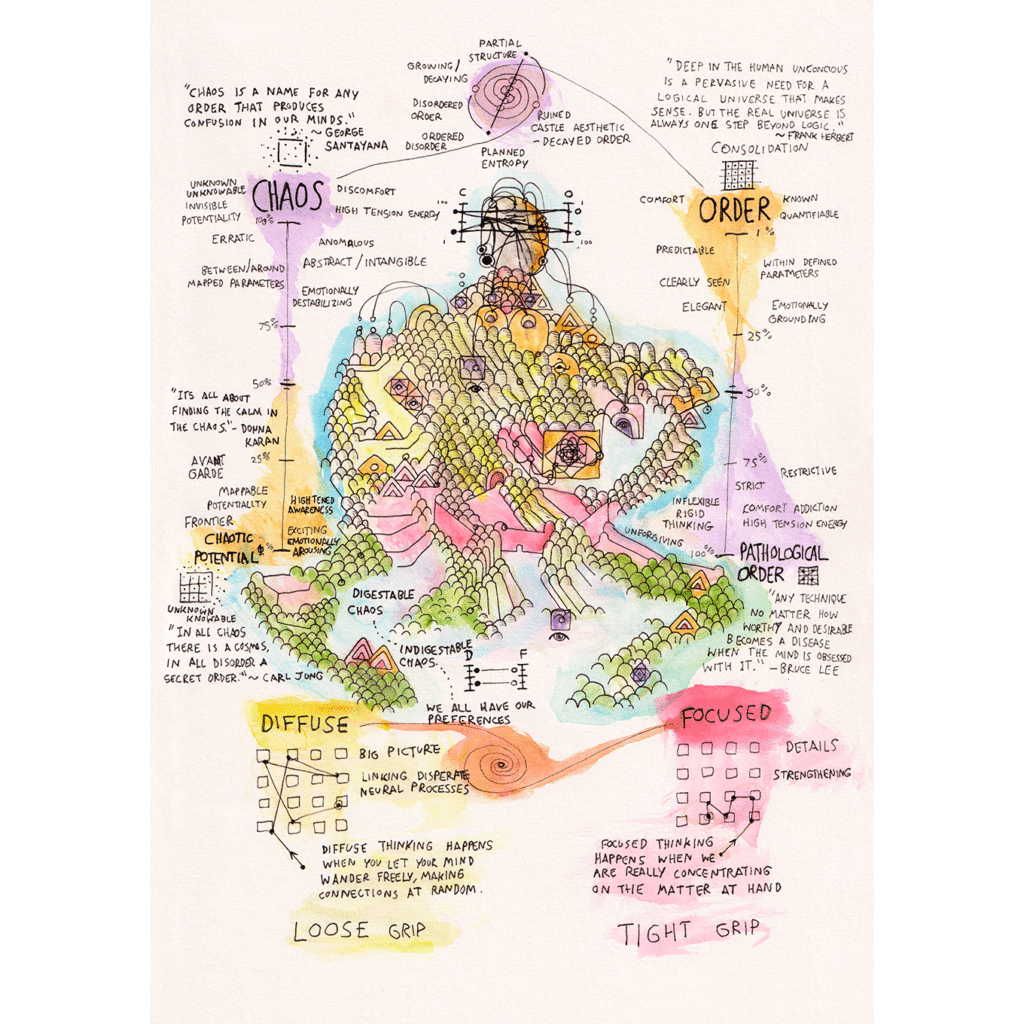 PARTIAL
STRUCTURE
GROWING/
DECAYING
DISORDERED
ORDER
ORDERED
DISORDER
PLANNED
ENTROPY
RUINED
CASTLE AESTHETIC
- DECAYED ORDER
"CHAOS IS A NAME FOR ANY
ORDER THAT PRODUCES
CONFUSION IN OUR MINDS."
~ GEORGE
SANTAYANA
"DEEP IN THE HUMAN UNCONCIOUS
IS A PERVASIVE NEED FOR A
LOGICAL UNIVERSE THAT MAKES
SENSE. BUT THE REAL UNIVERSE IS
ALWAYS ONE STEP BEYOND LOGIC."
~ FRANK HERBERT
CONSOLIDATION
UNKNOWN
UNKNOWABLE
INVISIBLE
POTENTIALITY
CHAOS
DISCOMFORT
HIGH TENSION ENERGY
100%
ERRATIC
ANOMALOUS
BETWEEN/AROUND
MAPPED PARAMETERS
ABSTRACT / INTANGIBLE
EMOTIONALLY
DESTABILIZING
75%
50%
"ITS ALL ABOUT
FINDING THE CALM IN
THE CHAOS." - DONNA
KARAN
AVANT
GARDE
25%
MAPPABLE
POTENTIALITY
FRONTIER
HIGHTENED
AWARENESS
EXCITING
EMOTIONALLY
AROUSING
CHAOTIC
POTENTIAL
1%
UNKNOWN
KNOWABLE
"IN ALL CHAOS
THERE IS A COSMOS,
IN ALL DISORDER A
SECRET ORDER." ~ CARL JUNG
C O
100 1
1 100
COMFORT
ORDER
KNOWN
QUANTIFIABLE
1%
PREDICTABLE
WITHIN DEFINED
PARAMETERS
CLEARLY SEEN
ELEGANT
EMOTIONALLY
GROUNDING
25%
50%
75%
RESTRICTIVE
STRICT
INFLEXIBLE
RIGID
THINKING
COMFORT ADDICTION
HIGH TENSION ENERGY
UNFORGIVING
100%
PATHOLOGICAL
ORDER
"ANY TECHNIQUE
NO MATTER HOW
WORTHY AND DESIRABLE
BECOMES A DISEASE
WHEN THE MIND IS OBSESSED
WITH IT." - BRUCE LEE
DIGESTABLE
CHAOS
INDIGESTABLE
CHAOS
D F
WE ALL HAVE OUR
PREFERENCES
DIFFUSE
BIG PICTURE
LINKING DISPERATE
NEURAL PROCESSES
DIFFUSE THINKING HAPPENS
WHEN YOU LET YOUR MIND
WANDER FREELY, MAKING
CONNECTIONS AT RANDOM.
LOOSE GRIP
FOCUSED
DETAILS
STRENGTHENING
FOCUSED THINKING
HAPPENS WHEN WE
ARE REALLY CONCENTRATING
ON THE MATTER AT HAND
TIGHT GRIP